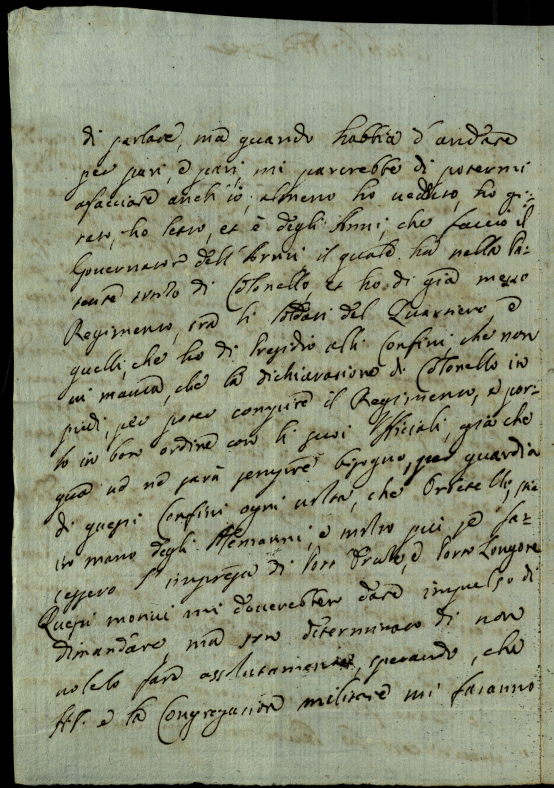 di parlare, ma quando habbia d'andare
per pari, e pari, mi parerebbe di potermi
afacciare anch'io; almeno ho ueduto, ho gi-
rato, ho letto, et è degli Anni, che faccio il
Gouernatore dell'Armi il quale ha nella Pa-
tente titolo di Colonello et ho di già mezzo
Regimento, trà li soldati del Quartiero, e
quelli, che ho di Presidio alli Confini, che non
ui manca, che la dichiarazione di Colonello in
piedi, per poter compire il Regimento, e por-
lo in bon ordine con li suoi Officiali, già che
quà ue ne sarà sempre bisogno, per guardia
di questi Confini ogni uolta, che Orbetello, stia
in mano degli Alemanni, e molto più se fa-
cessero l'impresa di Port'Ercole, e Porto Longone
Questi motiui mi douerebbero dare impulso di
dimandare, ma son determinato di non
uolelo fare assolutamente, sperando, che
e la Congregatione militare mi faranno